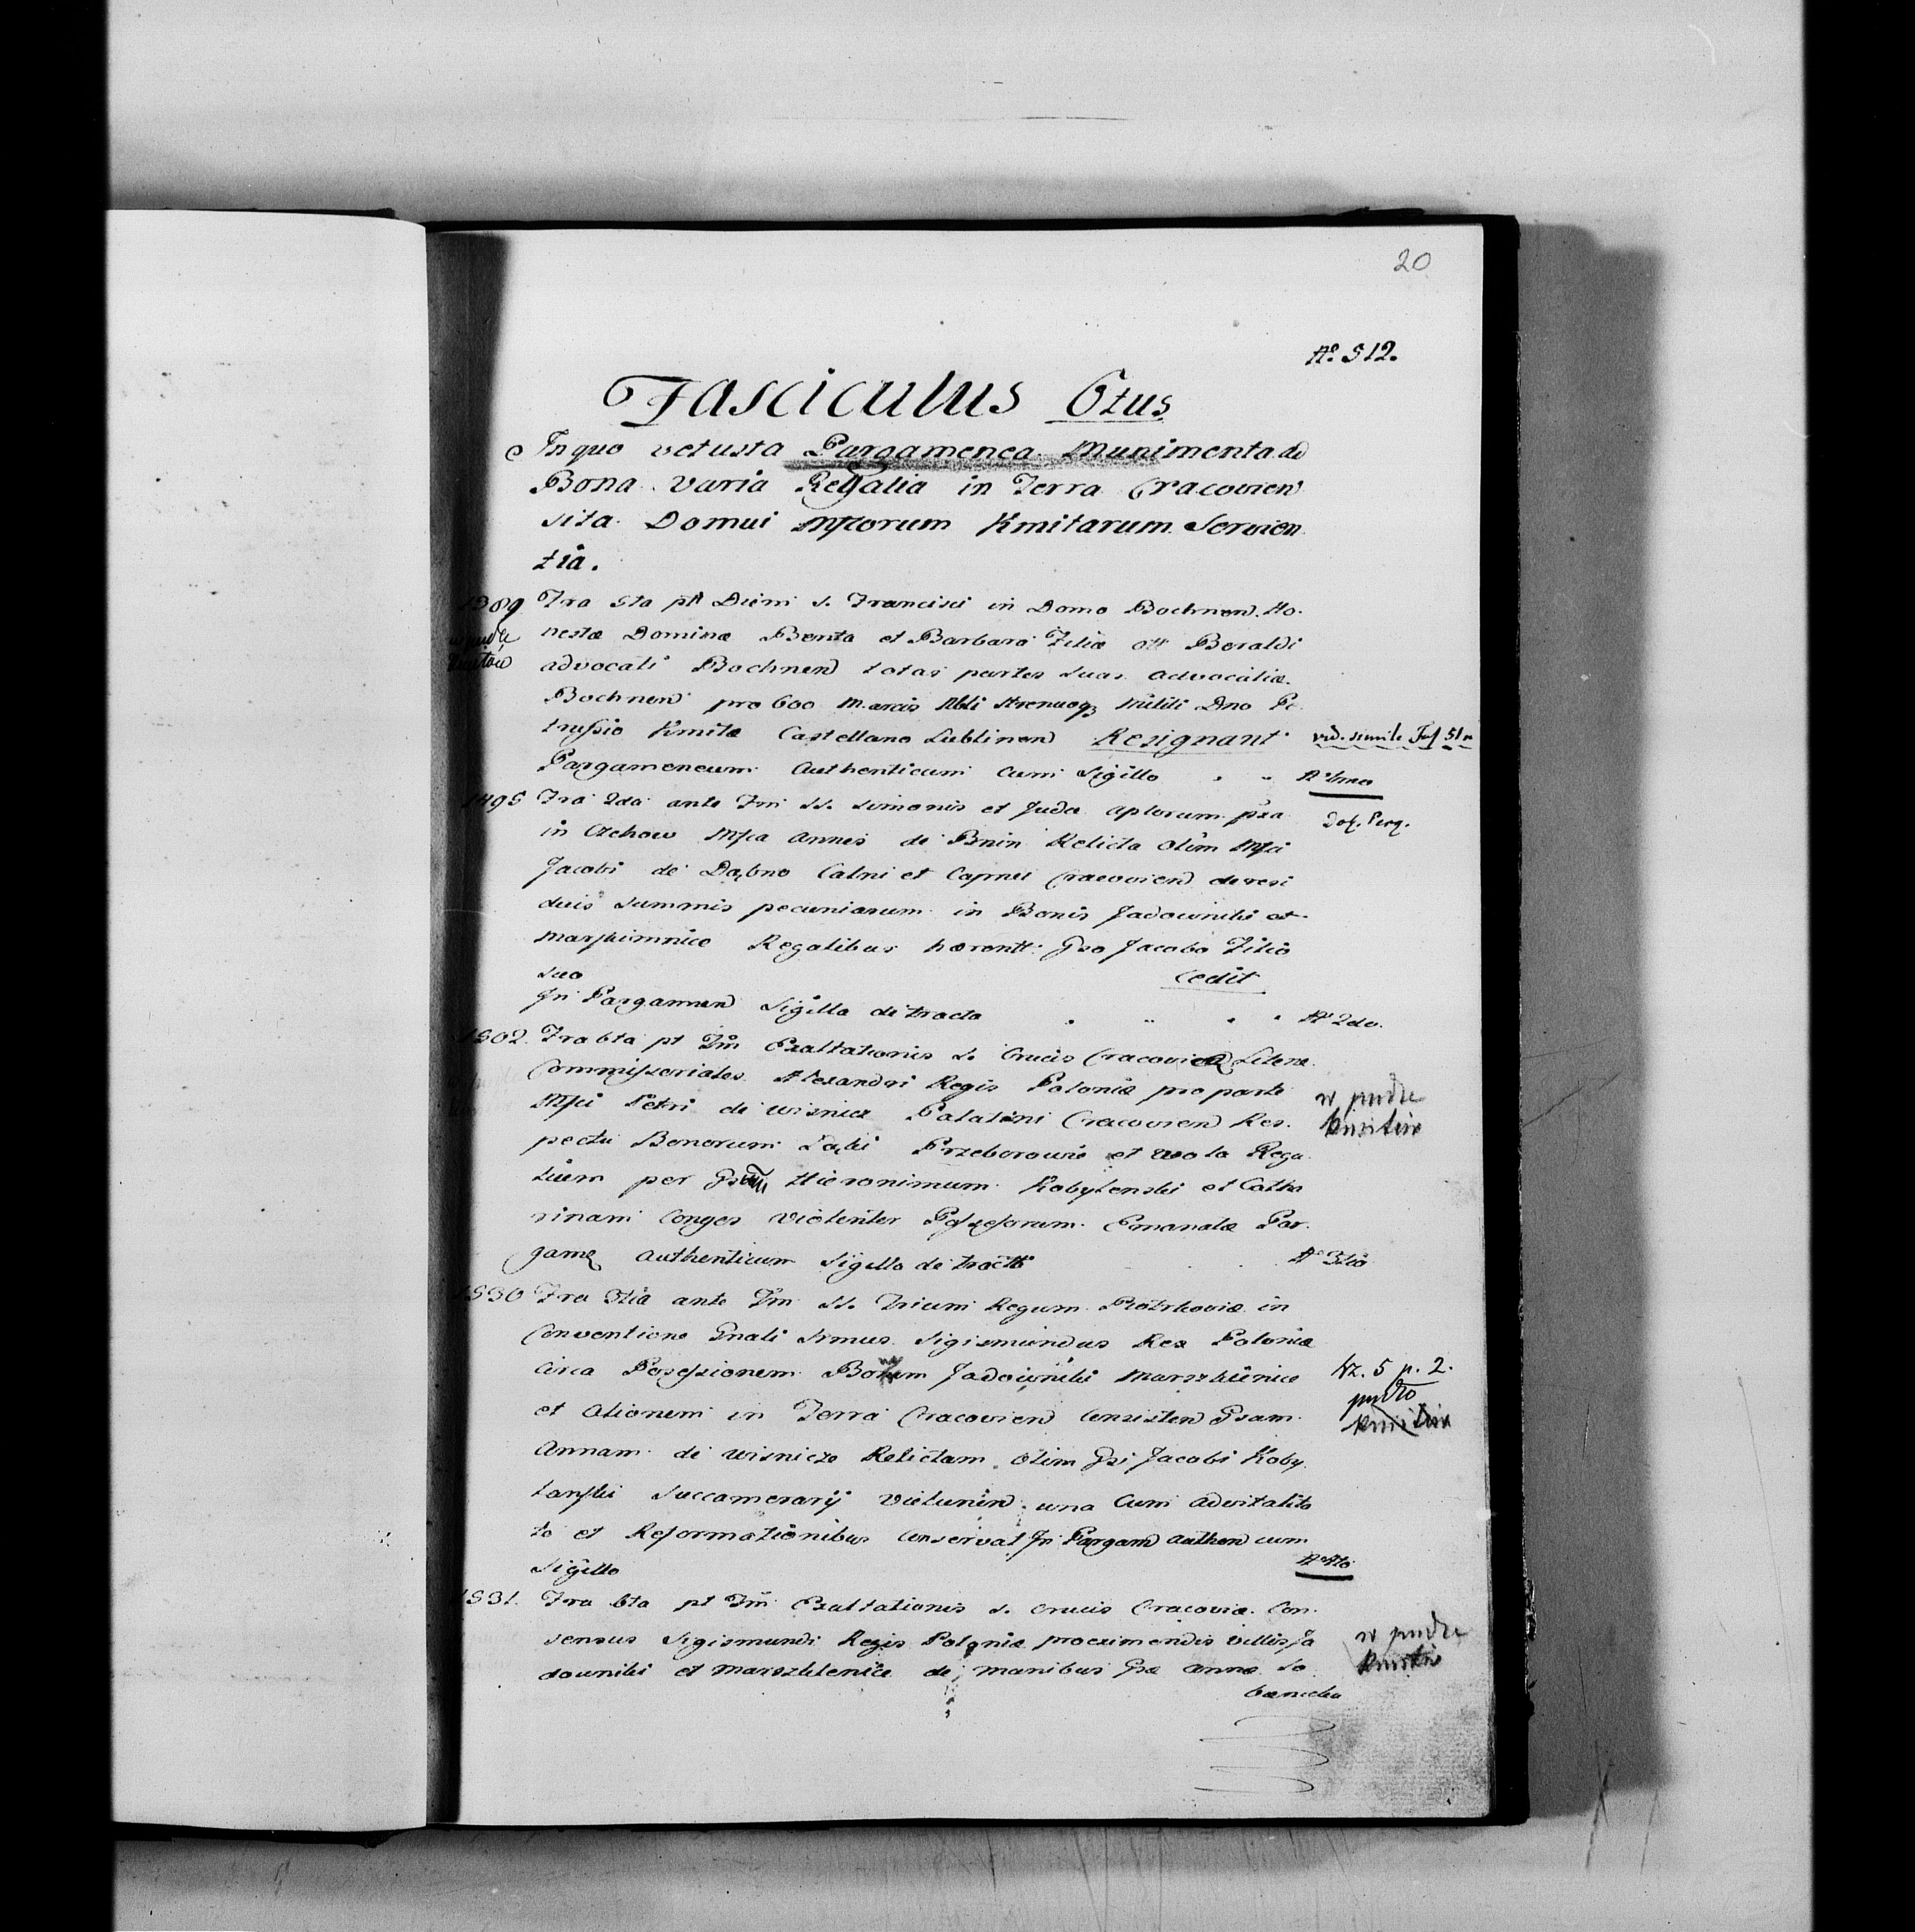 20
No. 512.
Fasciculus 6tus
In quo vetusta Pargamenea Munimenta ad
Bona varia Regalia in Terra Cracovien
sita Domui Mfcorum Kmitarum Servien
tia.
1389 Fra 5ta pt Diem S. Francisci in Domo Bochnen. Ho-
w pudle nestæ Dominæ Benta et Barbara Filiæ Beraldi
advocati Bochnen totas partes suas advocatiæ
Bochnen pro 600 Marcis Nbli Strenuoq Militi Dno Pe
trassio Kmita Castellano Lublinen Resignant vid. simile Fas 51
Pargameneum Authenticum cum Sigillo No 1mo
1495 Fra 2da ante Fm SS. Simonis et Juda aplorum pza Dok. Perg.
in Czchow Mfca Annes de Bnin Relicta Olim Mfci
Jacobi de Dąbno Calni et Capnei Cracovien de resi
duis summis pecuniarum in Bonis Jadowniki et
Regalibus hærentt Gso Jacobo Filio
suo Cedit
In Pargamen Sigilla detracta No 2do.
1502. Fra 6ta pt Fm Exaltationis S. Crucis Cracovien Literæ
Commissoriales Alexandri Regis Poloniæ pro parte w pudle
Mfci Petri de Wisnicz Palatini Cracovien Res-
pectu Bonorum Łąki Przeborowie et Wola Rega
lium per Hieronimum Kobylenski et Catha
rinam Conges Violenter Possessorum Emanatæ Par-
game Authenticum Sigillo detractto No 3tio
1530 Fra 3tia ante Fm SS. Trium Regum Piotrkoviæ in
Conventione Gnali Srmus Sigismundus Rex Poloniæ
circa Possessionem Jadowniki Marszklenice Nr. 5 p. 2.
et Alionem in Terra Cracovien Consisten Gsam pudło
Annam de Wisnicze Relictam Olim Gsi Jacobi Koby
lanski Succamerarij Vielunen una cum advitalita
te et Reformationibus Conservat In Pargam authen cum
Sigillo No 4to
1531. Fra 6ta pt Fm Exaltationis S. Crucis Cracoviæ Con-
sensus Sigismundi Regis Poloniæ pro eximendis villis Ja w pudle
downiki et Marszklenice de manibus Gsæ Annæ So